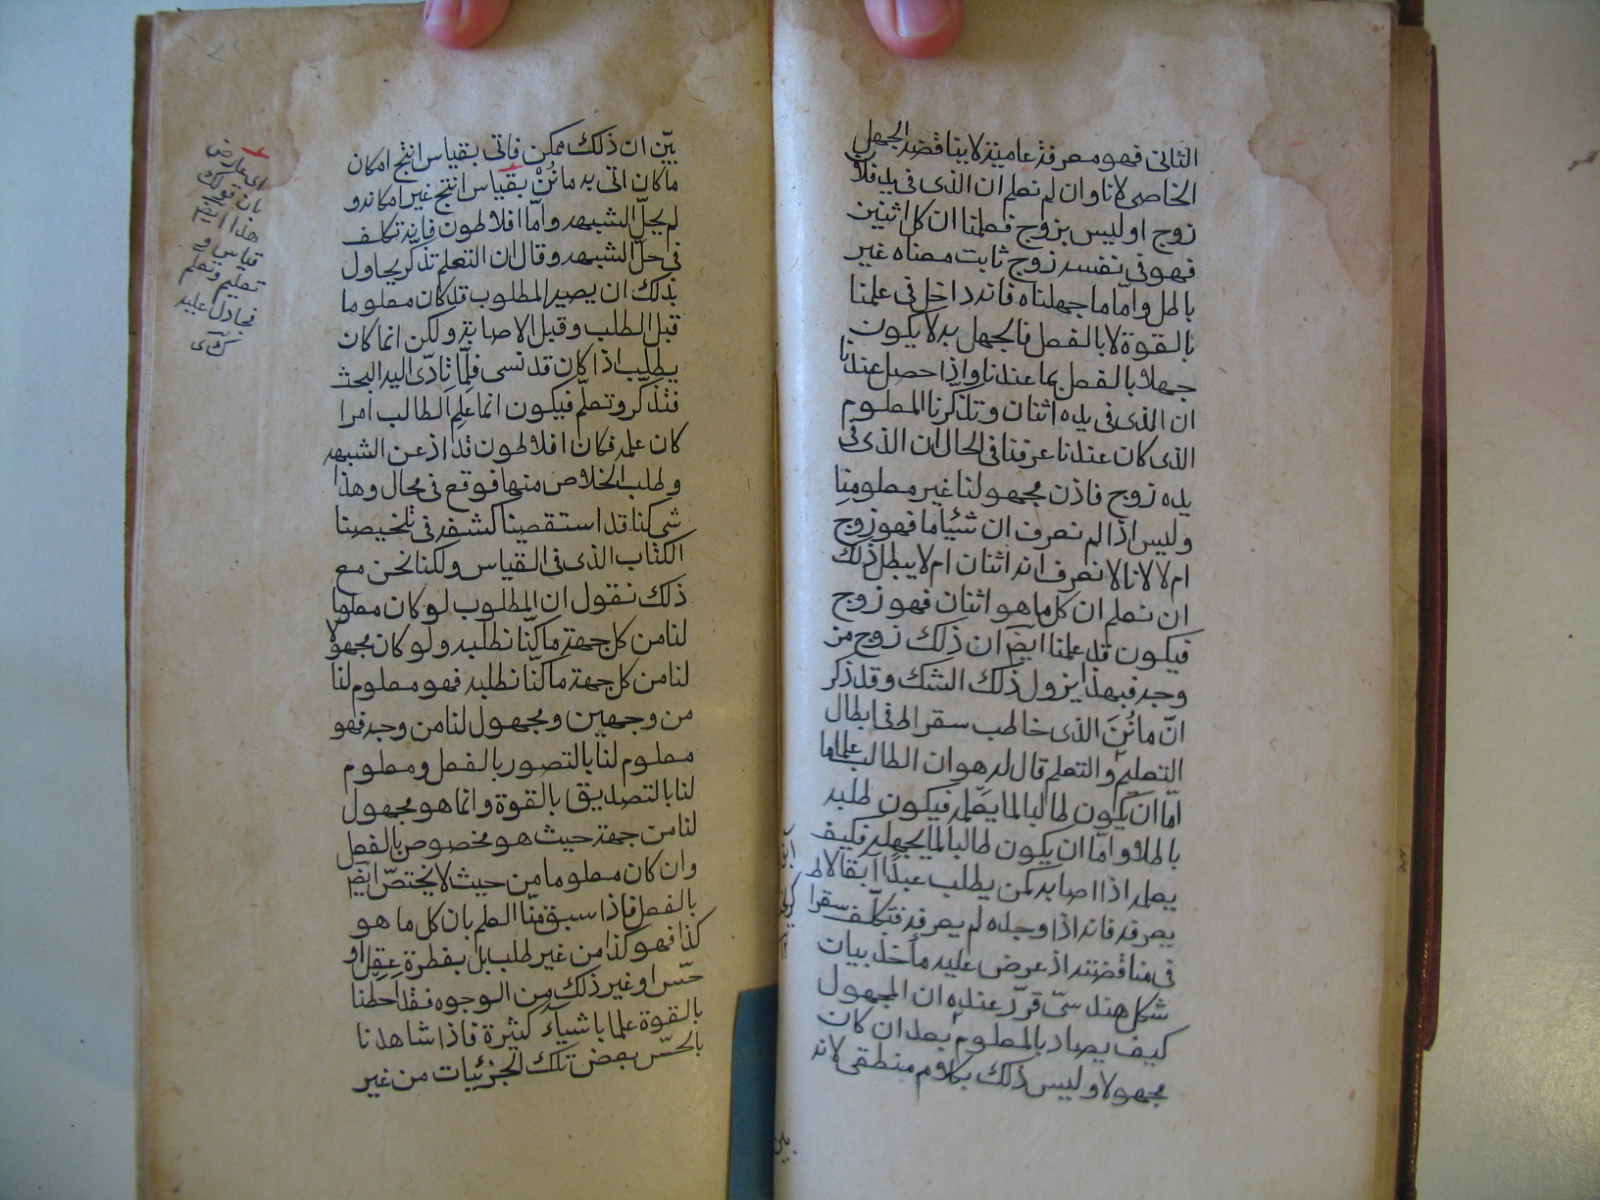 الثانى فهو معرفة عامية لا يناقضه الجهل
الخاصى لانا وان لم نعلم ان الذى فى يد فلان
زوج او ليس بزوج فعلمنا ان كل اثنين
فهو فى نفسه زوج ثابت معناه غير
باطل واما ما جهلناه فانه داخل فى علمنا
بالقوة لا بالفعل فالجهل به لا يكون
جهلا بالفعل بما عندنا واذا حصل عندنا
ان الذى فى يده اثنان وتذكرنا المعلوم
الذى كان عندنا عرفنا فى الحال ان الذى فى
يده زوج فاذن مجهولنا غير معلومنا
وليس اذا لم نعرف ان شيئا ما فهو زوج
ام لا لانا لا نعرف انه اثنان ام لا يبطل ذلك
ان نعلم ان كل ما هو اثنان فهو زوج
فيكون قد علمنا ايض ان ذلك زوج من
وجه فبهذا يزول ذلك الشك وقد ذكر
انّ مانُنَ الذى خاطب سقراط فى ابطال
التعليم والتعلم قال له هو ان الطالب علما ما
امّا ان يكون طالبا لما يعلمه فيكون طلبه
باطلا وامّا ان يكون طالبا لما يجهله فكيف
يعلمه اذا اصابه كمن يطلب عبداً آبقا لا
يعرفه فانه اذا وجده لم يعرفه فتكلّف سقراط
فى مناقضته اذ عرض عليه مأخذ بيان
شكل هندسىّ قرّر عنده ان المجهول
كيف يصاد بالمعلوم بعد ان كان
مجهولا وليس ذلك بكلام منطقى لانه
بين
بيّن ان ذلك ممكن فاتى بقياس انتج امكان
ما كان اتى به مانُنْ بقياس انتج غير امكانه و
لم يحلّ الشبهه وامّا افلاطون فانه تكلف
فى حلّ الشبهه وقال ان التعلم تذكّر يحاول
بذلك ان يصير المطلوب قد كان معلوما
قبل الطلب وقبل الاصابة ولكن انما كان
يطلب اذا كان قد نسى فلمّا تأدّى اليه البحث
فتذكّر وتعلّم فيكون انما علم الطالب امرا
كان علمه فكان افلاطون قد اذعن الشبهه
وطلب الخلاص منها فوقع فى محال وهذا
شى كنا قد استقصينا كشفه فى تلخيصنا
الكتاب الذى فى القياس ولكنا نحن مع
ذلك نقول ان المطلوب لو كان معلوما
لنا من كل جهة ما كنّا نطلبه ولو كان مجهولا
لنا من كل جهة ما كنّا نطلبه فهو معلوم لنا
من وجهين ومجهول لنا من وجه فهو
معلوم لنا بالتصور بالفعل ومعلوم
لنا بالتصديق بالقوة وانما هو مجهول
لنا من جهة حيث هو مخصوص بالفعل
وان كان معلوما من حيث لا يختصّ ايض
بالفعل فاذا سبق منّا العلم بان كل ما هو
كذا فهو كذا من غير طلب بل بفطرة عقل او
حسّ او غير ذلك من الوجوه فقد احطنا
بالقوة علما باشياء كثيرة فاذا شاهدنا
بالحسّ بعض تلك الجزئيات من غير
اى عارض
بان قولك
هذا ايض
قياس و
تعليم وتعلم